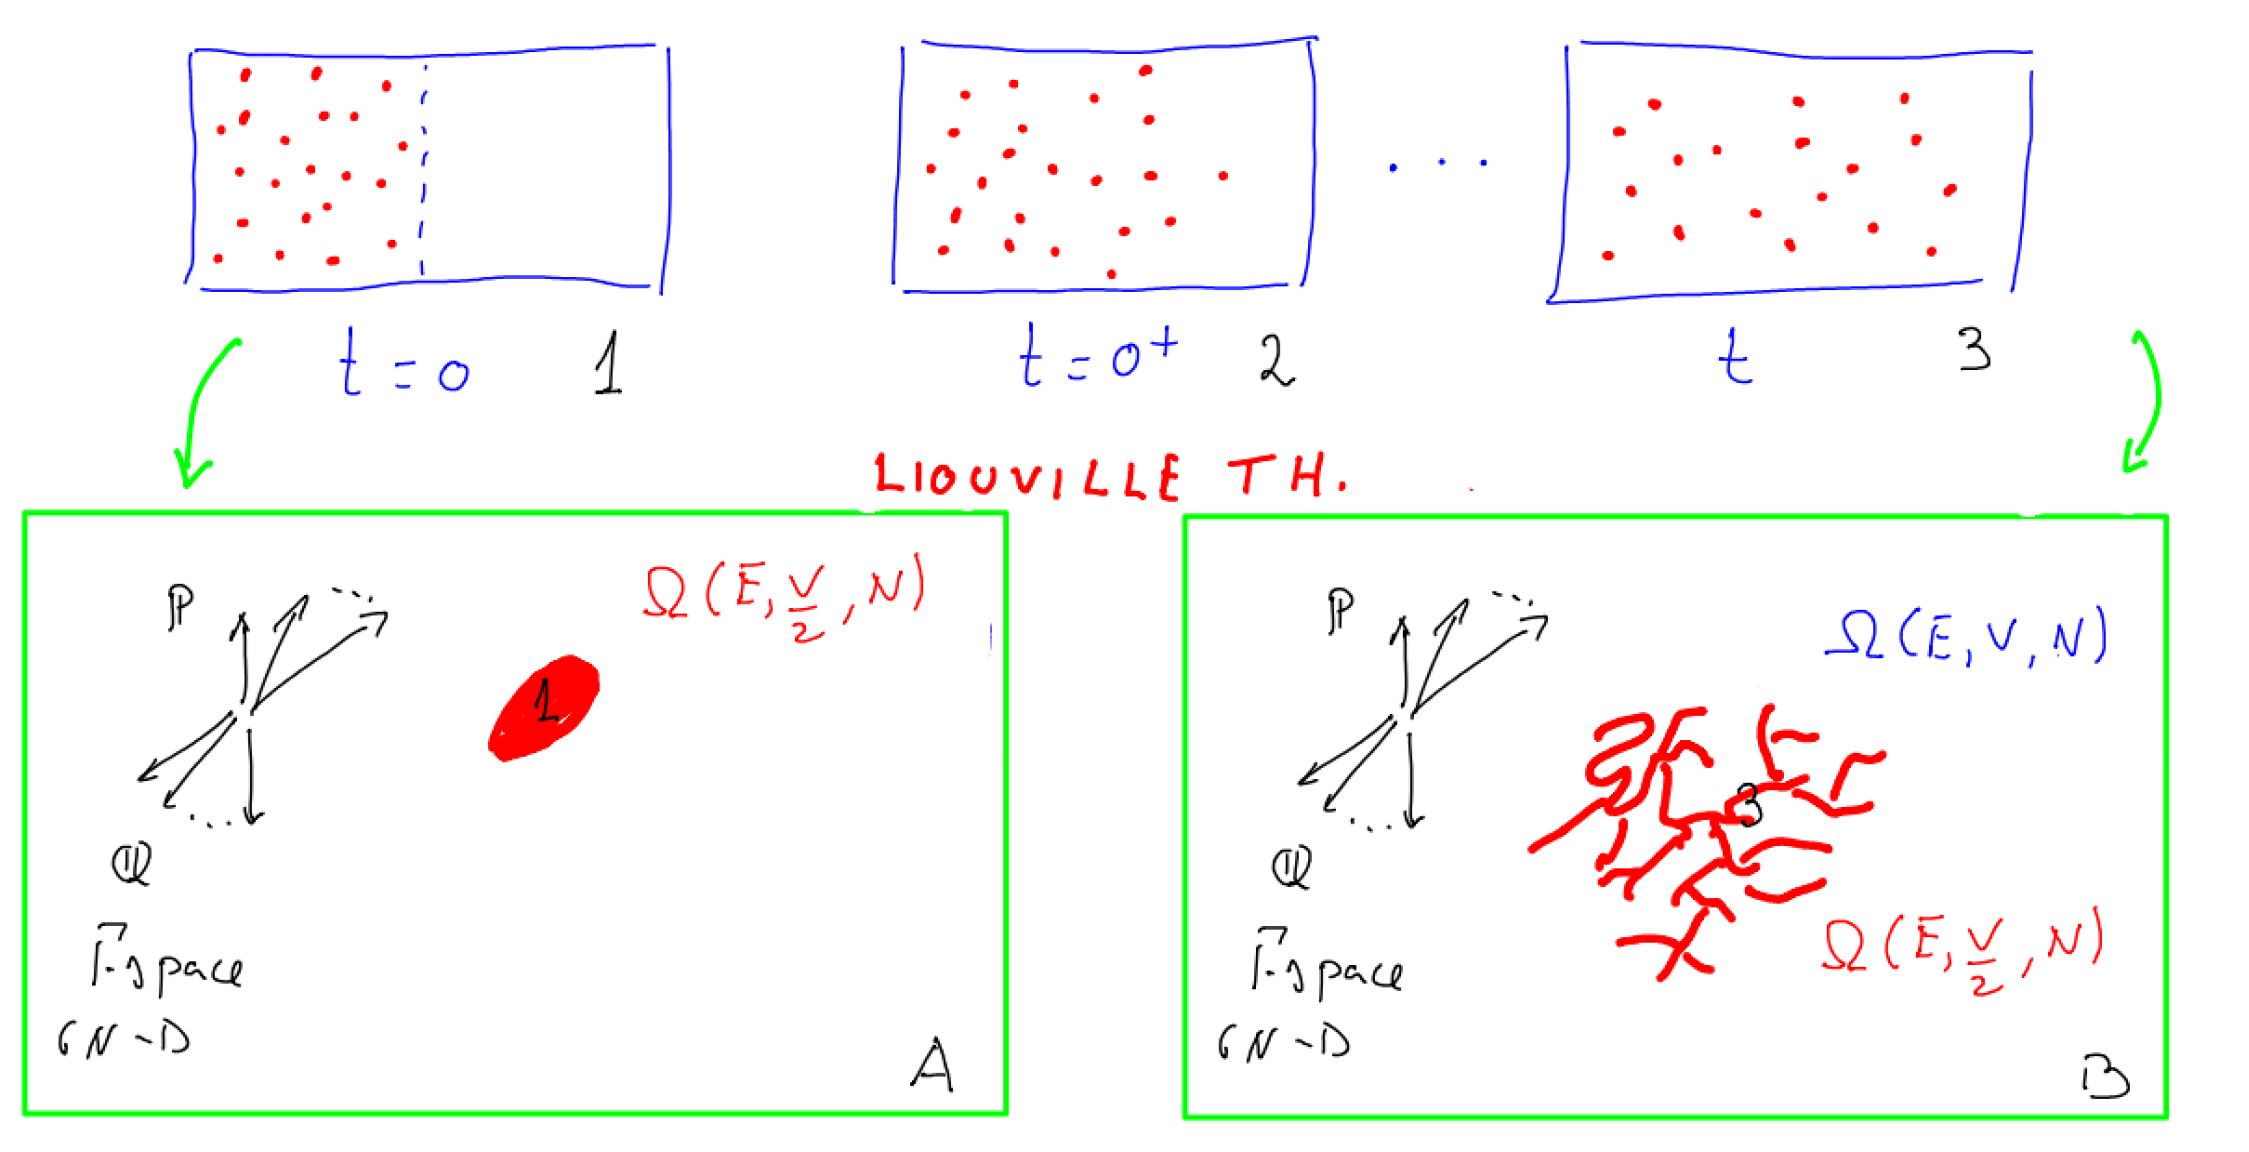 t = 0 1
t = 0⁺ 2
t 3
LIOUVILLE TH.
ℙ
Ω(E, V/2, N)
1
ℚ
Γ-space
6N-D
A
ℙ
Ω(E, V, N)
3
ℚ
Ω(E, V/2, N)
Γ-space
6N-D
B